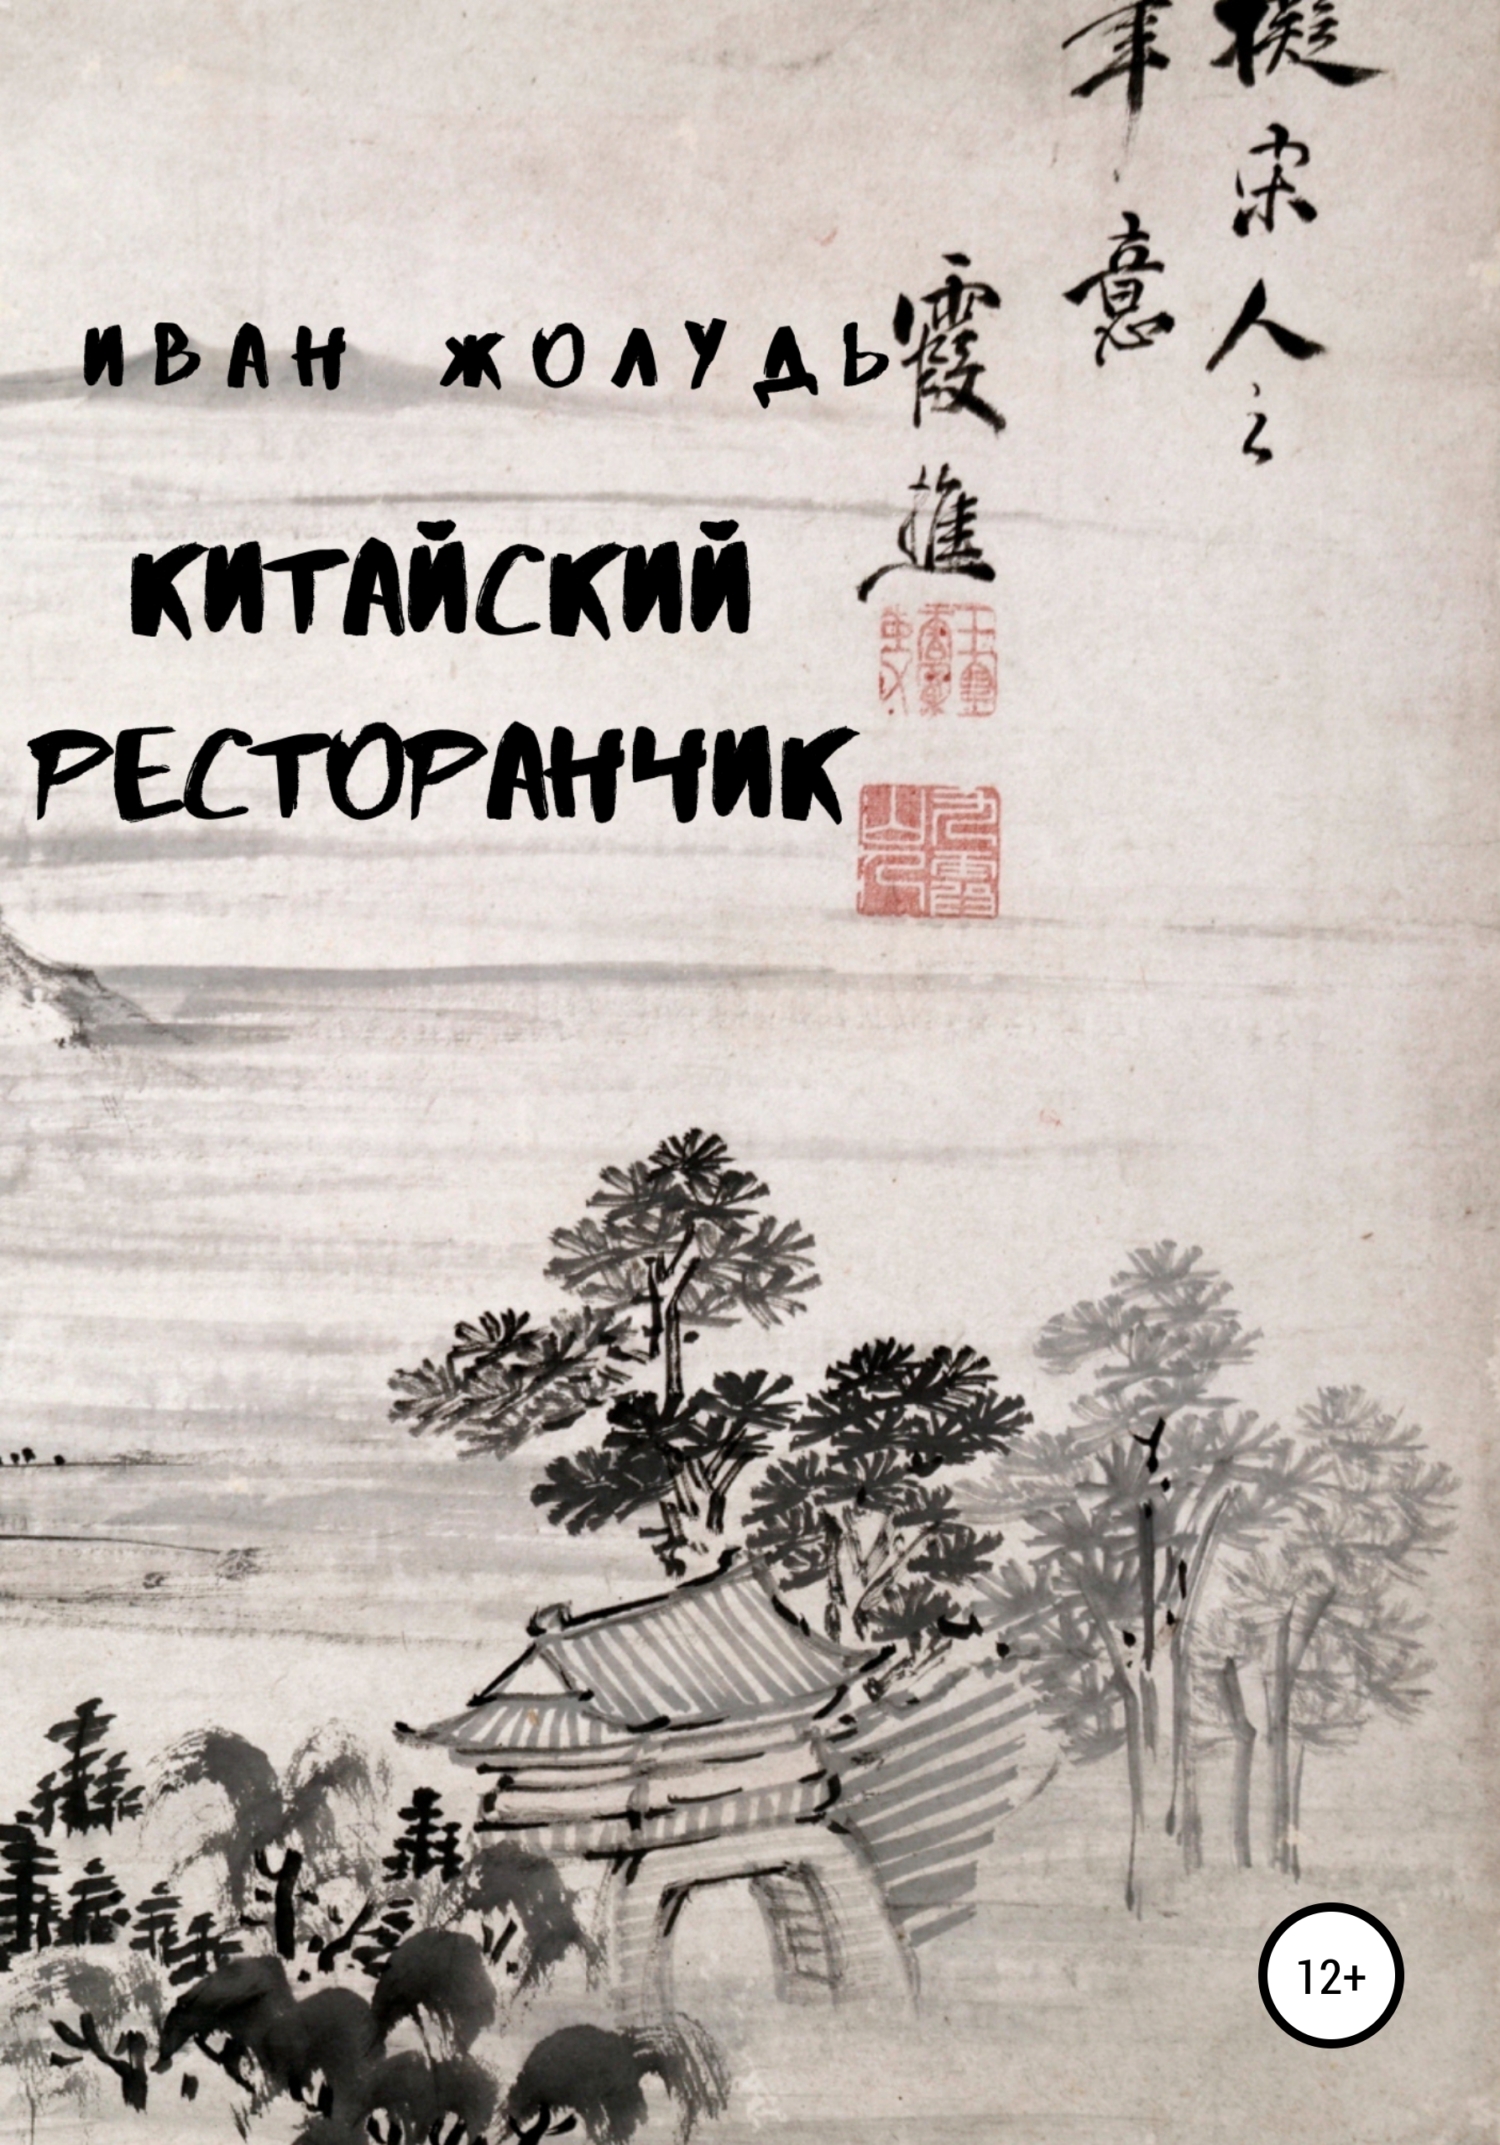 ИВАН ЖОЛУДЬ
КИТАЙСКИЙ
РЕСТОРАНЧИК
擬宋人之
筆意
霞樵
12+